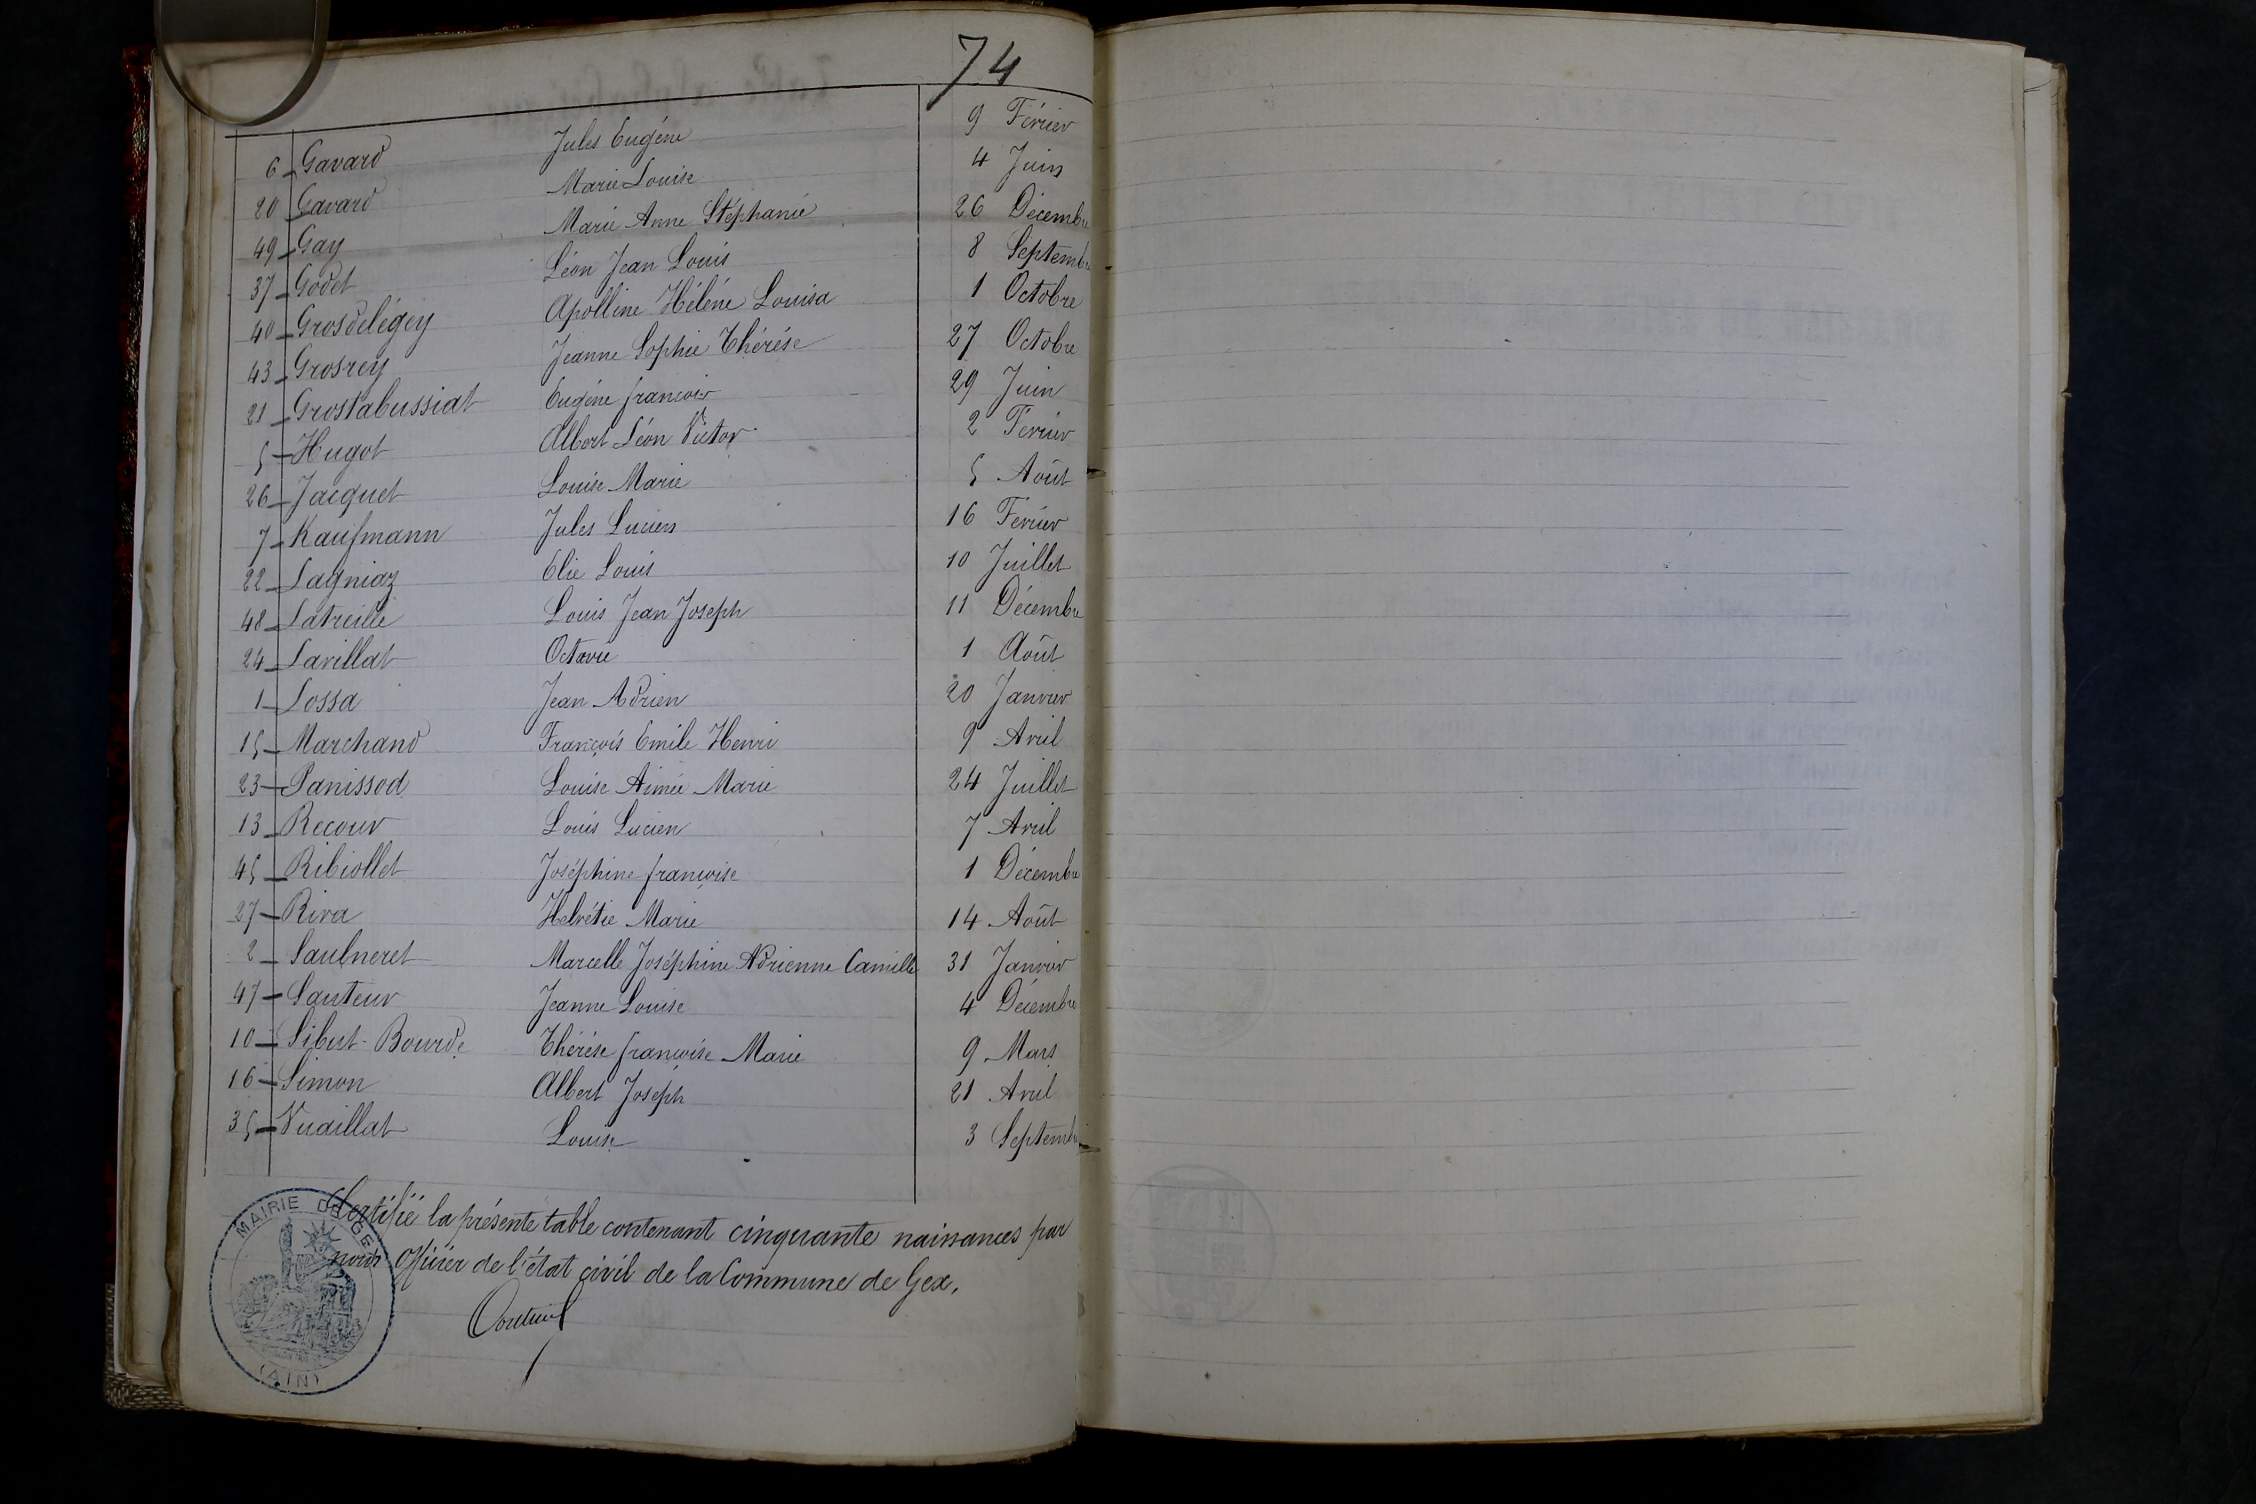 74
6 Gavard Jules Eugène 9 Février
20 Gavard Marie Louise 4 Juin
49 Gay Marie Anne Stéphanie 26 Décembre
37 Godet Léon Jean Louis 8 Septembre
40 Grosdelégey Apolline Hélène Louisa 1 Octobre
43 Grosrey Jeanne Sophie Thérèse 27 Octobre
21 Grostabussiat Eugène françois 29 Juin
5 Hugot Albert Léon Victor 2 Février
26 Jacquet Louise Marie 5 Août
7 Kaufmann Jules Lucien 16 Fevrier
22 Lagniaz Elie Louis 10 Juillet
48 Latreille Louis Jean Joseph 11 Décembre
24 Lavillat Octavie 1 Août
1 Lossa Jean Adrien 20 Janvier
15 Marchand François Emile Henri 9 Avril
23 Panissod Louise Aimée Marie 24 Juillet
13 Recour Louis Lucien 7 Avril
45 Ribiollet Joséphine françoise 1 Décembre
27 Riva Helvétie Marie 14 Août
2 Saulneret Marcelle Joséphine Adrienne Camille 31 Janvier
47 Sauteur Jeanne Louise 4 Décembre
10 Sibut-Bourde Thérèse françoise Marie 9 Mars
16 Simon Albert Joseph 21 Avril
35 Vuaillat Louise 3 Septembre
Certifié la présente table contenant cinquante naissances par
nous Officier de l'état civil de la Commune de Gex.
MAIRIE DE GEX
(AIN)